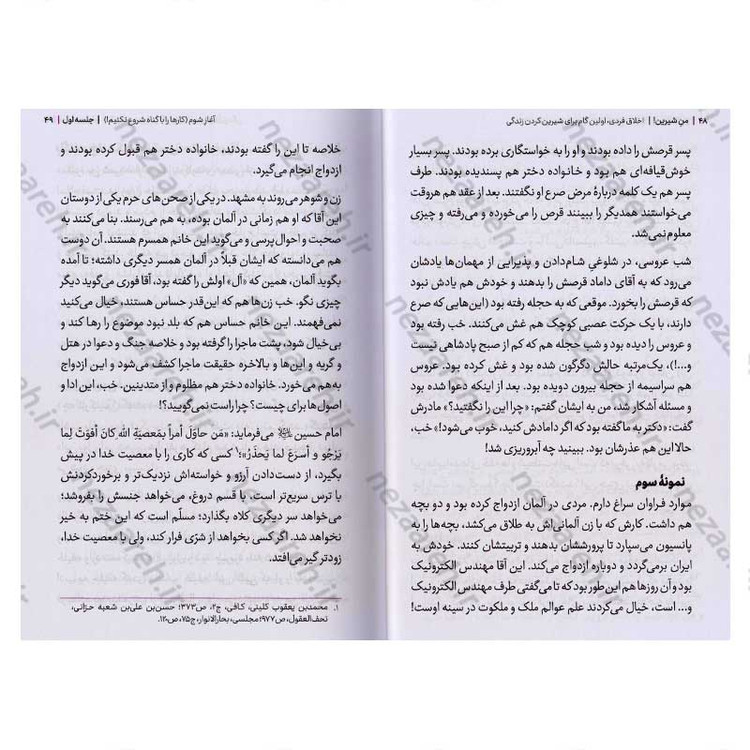 ۴۸ | من شیرین! | اخلاق فردی، اولین گام برای شیرین کردن زندگی
پسر قرصش را داده بودند و او را به خواستگاری برده بودند. پسر بسیار
خوش‌قیافه‌ای هم بود و خانواده دختر هم پسندیده بودند. طرف
پسر هم یک کلمه دربارهٔ مرض صرع او نگفتند. بعد از عقد هم هروقت
می‌خواستند همدیگر را ببینند قرص را می‌خورده و می‌رفته و چیزی
معلوم نمی‌شد.
شب عروسی، در شلوغیِ شام‌دادن و پذیرایی از مهمان‌ها یادشان
می‌رود که به آقای داماد قرصش را بدهند و خودش هم یادش نبود
که قرصش را بخورد. موقعی که به حجله رفته بود (این‌هایی که صرع
دارند، با یک حرکت عصبی کوچک هم غش می‌کنند. خب رفته بود
و عروس را دیده بود و شب حجله هم که کم از صبح پادشاهی نیست
و...!)، یک‌مرتبه حالش دگرگون شده بود و غش کرده بود. عروس
هم سراسیمه از حجله بیرون دویده بود. بعد از اینکه دعوا شده بود
و مسئله آشکار شد، من به ایشان گفتم: «چرا این را نگفتید؟» مادرش
گفت: «دکتر به ما گفته بود که اگر دامادش کنید، خوب می‌شود!» خب،
حالا این هم عذرشان بود. ببینید چه آبروریزی شد!
نمونهٔ سوم
موارد فراوان سراغ دارم. مردی در آلمان ازدواج کرده بود و دو بچه
هم داشت. کارش که با زن آلمانی‌اش به طلاق می‌کشد، بچه‌ها را به
پانسیون می‌سپارد تا پرورششان بدهند و تربیتشان کنند. خودش به
ایران برمی‌گردد و دوباره ازدواج می‌کند. این آقا مهندس الکترونیک
بود و آن روزها هم این‌طور بود که تا می‌گفتی طرف مهندس الکترونیک
و... است، خیال می‌کردند علم عوالم ملک و ملکوت در سینه اوست!
آغاز شوم (کارها را با گناه شروع نکنیم!) | جلسه اول | ۴۹
خلاصه تا این را گفته بودند، خانواده دختر هم قبول کرده بودند و
ازدواج انجام می‌گیرد.
زن و شوهر می‌روند به مشهد. در یکی از صحن های حرم یکی از دوستان
این آقا که او هم زمانی در آلمان بوده، به هم می‌رسند. بنا می‌کنند به
صحبت و احوال پرسی و می‌گوید این خانم همسرم هستند. آن دوست
هم می‌دانسته که ایشان قبلاً در آلمان همسر دیگری داشته؛ تا آمده
بگوید آلمان، همین که «آل» اولش را گفته بود، آقا فوری می‌گوید دیگر
چیزی نگو. خب زن‌ها هم که این‌قدر حساس هستند، خیال می‌کنید
نمی‌فهمند. این خانم حساس هم که بلد نبود موضوع را رها کند و
بی‌خیال شود، پشت ماجرا را گرفته بود و خلاصه جنگ و دعوا در هتل
و گریه و این‌ها و بالاخره حقیقت ماجرا کشف می‌شود و این ازدواج
به‌هم می‌خورد. خانواده دختر هم مظلوم و از متدینین. خب، این ادا و
اصول‌ها برای چیست؟ چرا راست نمی‌گویید؟!
امام حسین علیه‌السلام می‌فرماید: «مَن حاوَلَ أمراً بمَعصیَةِ الله کانَ أفوَتُ لِما
یَرْجُو و أسرَعَ لِما یَحذَرُ»؛۱ کسی که کاری را با معصیت خدا در پیش
بگیرد، از دست‌دادن آرزو و خواسته‌اش نزدیک‌تر و برخوردکردنش
با ترس سریع‌تر است. با قسم دروغ، می‌خواهد جنسش را بفروشد؛
می‌خواهد سر دیگری کلاه بگذارد؛ مسلّم است که این ختم به خیر
نخواهد شد. اگر کسی بخواهد از شرّی فرار کند، ولی با معصیت خدا،
زودتر گیر می‌افتد.
۱. محمدبن یعقوب کلینی، کافی، ج۲، ص۳۷۳؛ حسن‌بن علی‌بن شعبه حرّانی،
تحف‌العقول، ص۹۷۷؛ مجلسی، بحارالانوار، ج۷۵، ص۱۲۰.
nezaareh.ir